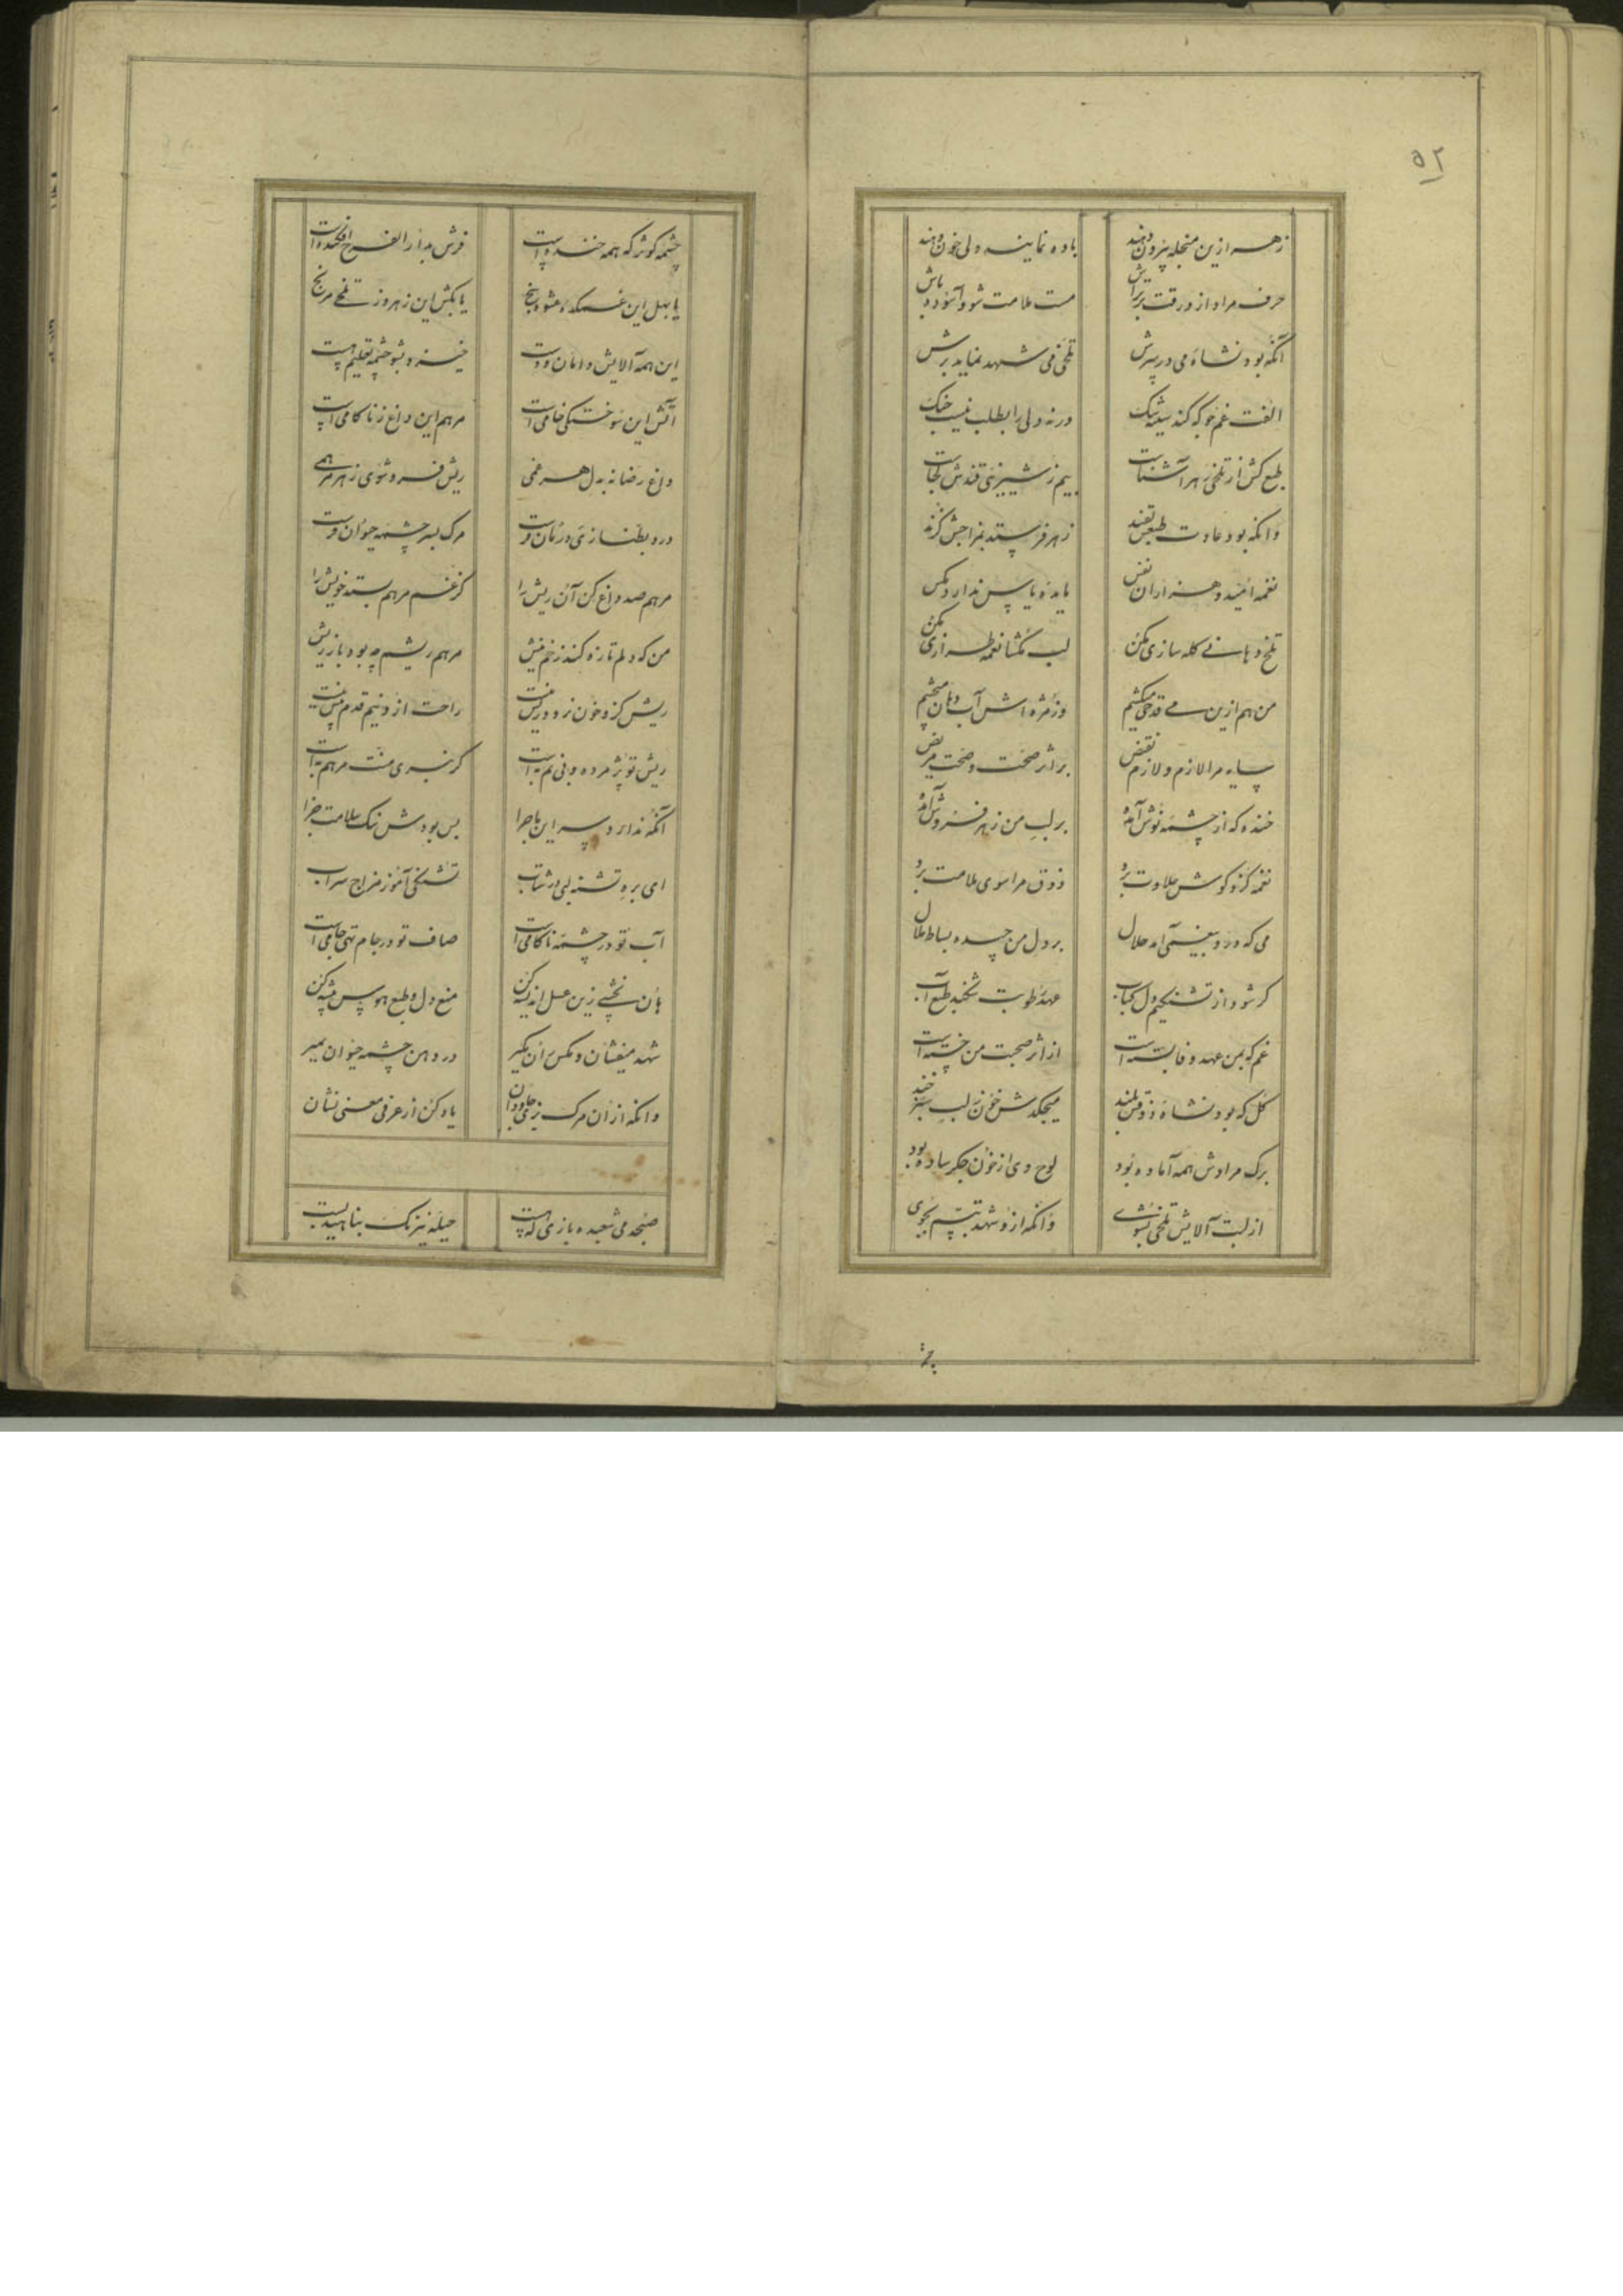 ۵۲
زهر ازین منجله بیرون دهند باده نمایند ولی خون دهند
حرف مراد از ورقت بر تراش مست ملامت شو و آسوده باش
آنکه بود نشاه می در سرش تلخی می شهد نماید برش
الفت غم جو که کند سینه تنک ورنه ولی را بطلب
طبع کش از تلخی زهر آشناست بیم ز شیرینی قندش کجاست
وانکه بود عادت طبعش بقند زهر فرستد بمزاجش گزند
نغمه امید و هزاران نفس مایده یاس ندارد مکس
تلخ دهانی گله سازی مکن لب مگشا نغمه طرازی مکن
من هم ازین می قدحی میکشم وز مژه اش آب دهان میچشم
سایه مرا لازم و لازم نقیض بر اثر صحت و صحت مریض
خنده که از چشمه نوش آمده بر لب من زهر فروش آمده
نغمه کزو گوش حلاوت برد ذوق مرا سوی ملامت برد
می که درو بیغمی آمد حلال بر دل من چیده بساط ملال
گر شود از تشنگیم دل کباب عهد رطوبت شکند طبع آب
غم که بمن عهد وفا بسته است از اثر صحبت من خسته است
گل که بود نشاه ذوقش بلند میچکدش خون ز لب
برگ مرادش همه آماده بود لوح وی از خون جگر ساده بود
از لبت آلایش تلخی بشوی وانکه ازو شهد تبسم بجوی
چشمه کوثر که همه خنده است فرش بدار الفرح افکنده است
یا بهل این غمکده عشوه سنج یا بکش این زهر وز تلخی مرنج
این همه آلایش دامان تست خیز و بشو چشمه تعلیم هست
آتش این سوختگی خامی است مرهم این داغ ز ناکامی است
داغ رضا نه به دل هر غمی ریش فرو شوی ز هر مرهمی
درد بطنازی درمان تست مرگ بسر چشمه حیوان تست
مرهم صد داغ کن آن ریش را کز غم مرهم خویش را
من که دلم تازه کند زخم نیش مرهم ریشم چه بود باز ریش
ریش کزو خون نرود ریش نیست راحت از دنیم قدم پیش نیست
ریش تو پژمرده و بی نم به است گر نبری منت مرهم به است
آنکه ندارد سر این ماجرا بس بودش ننک سلامت جزا
ای بره تشنه لبی در شتاب تشنگی آموز مزاج سراب
آب تو در چشمه ناکامی است صاف تو در جام تهی جامی است
هان نچشی زین عسل اندیشه کن منع دل و طبع هوس پیشه کن
شهد میفشان و مکس ران مگیر در دهن چشمه حیوان بمیر
وانکه از ان مرگ زی جاودان یاد کن از عرفی معنی نشان
صبحدمی شعبده بازی که هست حیله نیرنگ بناهید بست